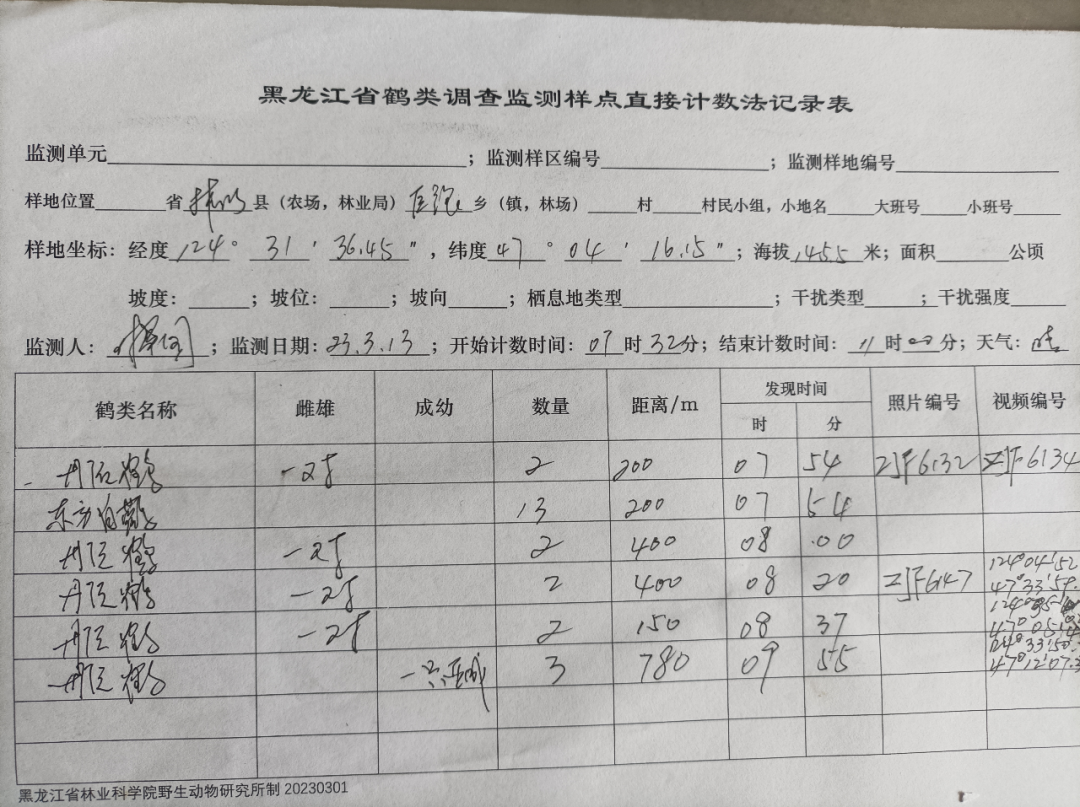 黑龙江省鹤类调查监测样点直接计数法记录表
监测单元______；监测样区编号______；监测样地编号______
样地位置______省 县（农场，林业局） 乡（镇，林场）______村______村民小组，小地名______大班号______小班号______
样地坐标：经度124° 31′ 36.45″，纬度47° 04′ 16.15″；海拔145.5米；面积______公顷
坡度：______；坡位：______；坡向______；栖息地类型______；干扰类型______；干扰强度______
监测人： ；监测日期：23.3.13；开始计数时间：07时32分；结束计数时间：11时00分；天气：晴
鹤类名称 雌雄 成幼 数量 距离/m 发现时间 照片编号 视频编号
时 分
丹顶鹤 2 200 07 54 ZJF6132 ZJF6134
东方白鹳 13 200 07 54
丹顶鹤 2 400 08 00
丹顶鹤 2 400 08 20 ZJF6147 124°04′52
47°33′59
丹顶鹤 2 150 08 37
丹顶鹤 3 780 09 55 124°33′50
47°12′07
黑龙江省林业科学院野生动物研究所制 20230301